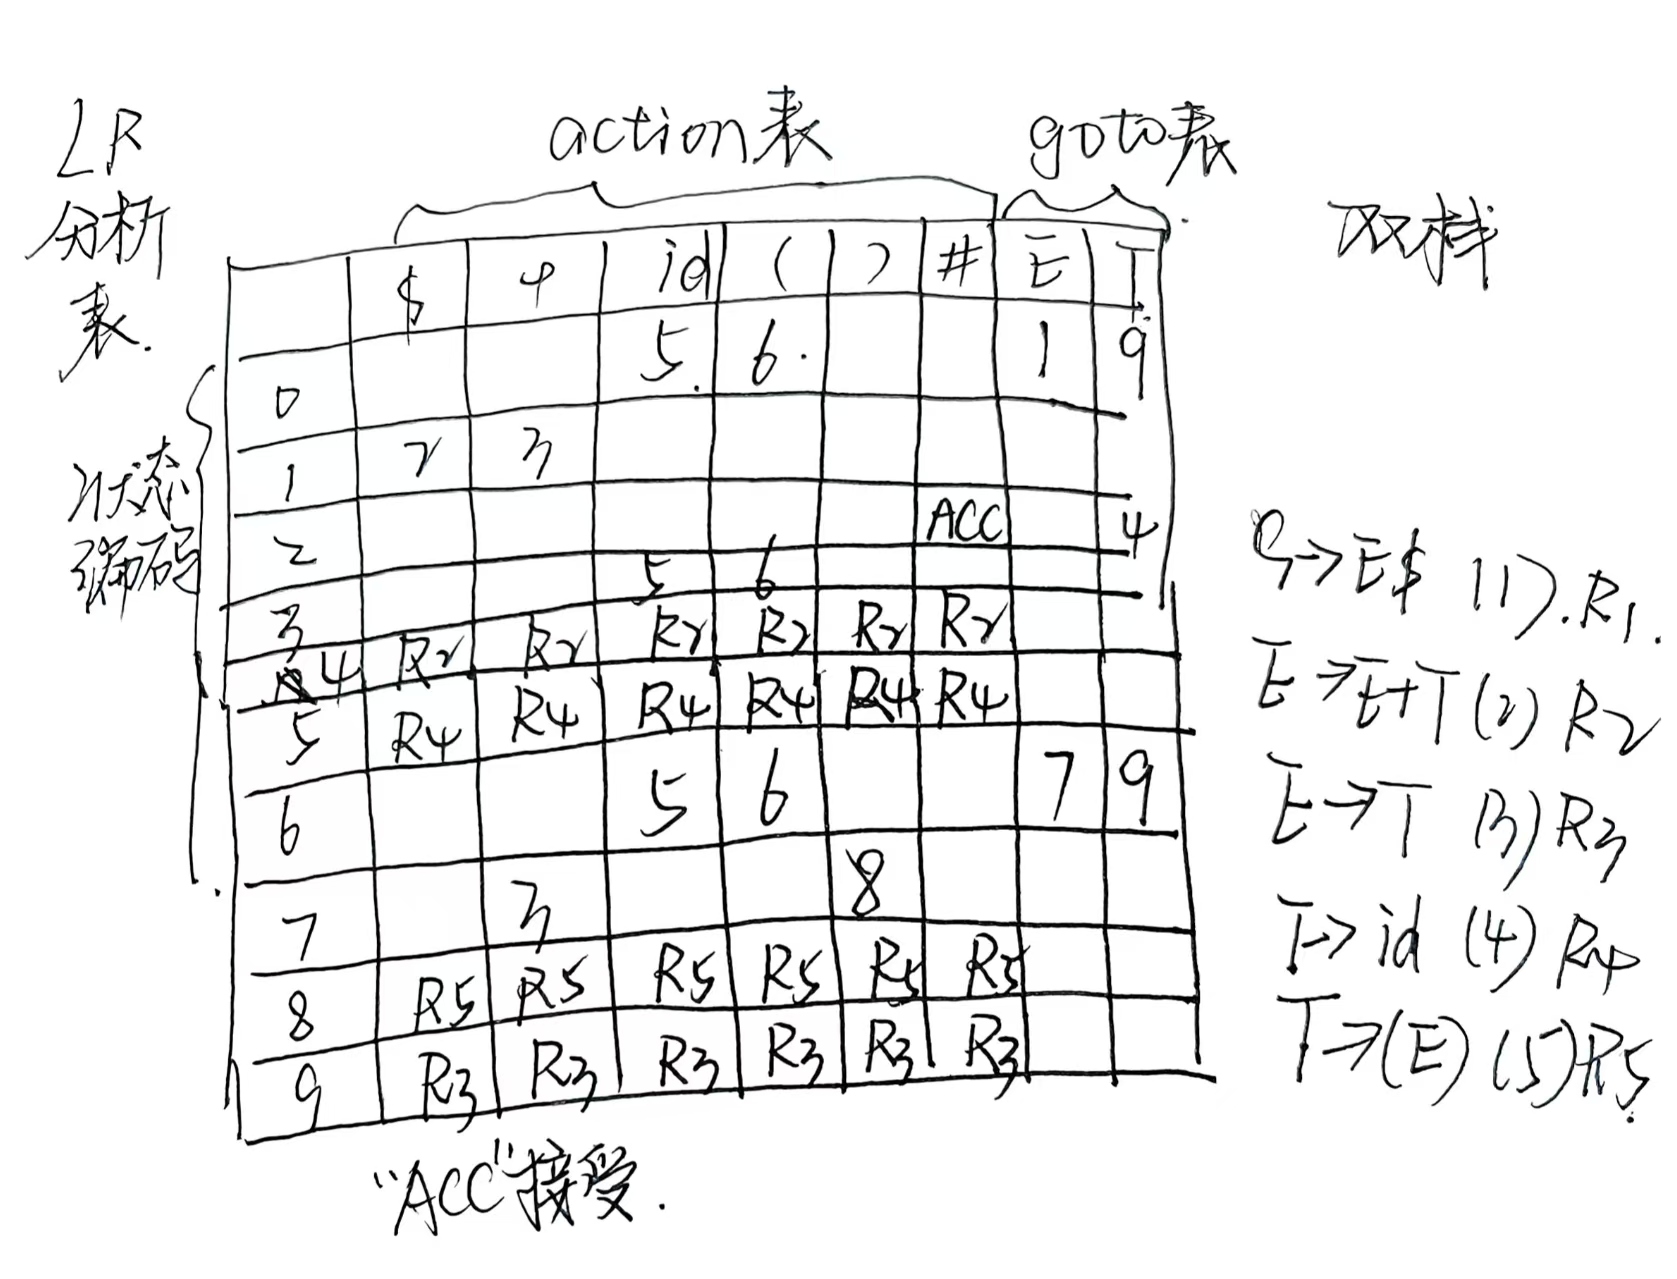 LR
分析
表.
action表
goto表
双栈
$ + id ( ) # E T
0 5. 6. 1 9
1 2 3
2 ACC 4
3 5 6
4 R2 R2 R2 R2 R2 R2
5 R4 R4 R4 R4 R4 R4
6 5 6 7 9
7 3 8
8 R5 R5 R5 R5 R5 R5
9 R3 R3 R3 R3 R3 R3
状态
编码
S→E$ (1).R1.
E→E+T (2) R2
E→T (3) R3
T→id (4) R4
T→(E) (5) R5.
"ACC"接受.